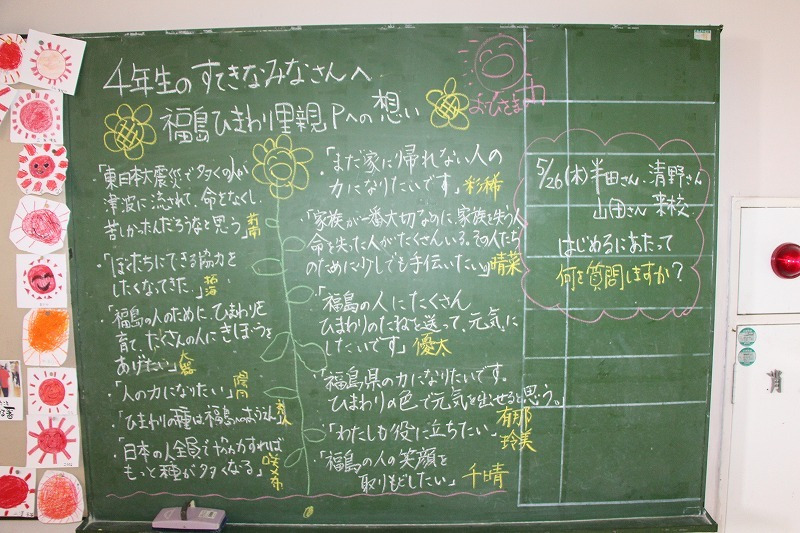 4年生のすてきなみなさんへ
福島ひまわり里親Pへの想い
おひさま
・「東日本大震災で多くの人が
津波に流されて、命をなくし
苦しかったんだろうなと思う」
・「ぼくたちにできる協力を
したくなってきた。」拓海
「福島の人のために、ひまわりを
育て、たくさんの人にきぼうを
あげたい」
・「人の力になりたい」
・「ひまわりの種は福島へおくろう」
・「日本の人全員でやれば
もっと種が多くなる」咲希
・「まだ家に帰れない人の
力になりたいです」彩稀
・「家族が一番大切なのに、家族を失う人
命を失った人がたくさんいる。その人たち
のために少しでも手伝いたい」晴菜
・「福島の人にたくさん
ひまわりのたねを送って、元気に
したいです」優太
・「福島県の力になりたいです。
ひまわりの色で元気を出せると思う。」
有那
・「わたしも役に立ちたい」玲美
・「福島の人の笑顔を
取りもどしたい」千晴
5/26(木)半田さん、清野さん
山田さん来校
はじめるにあたって
何を質問しますか?